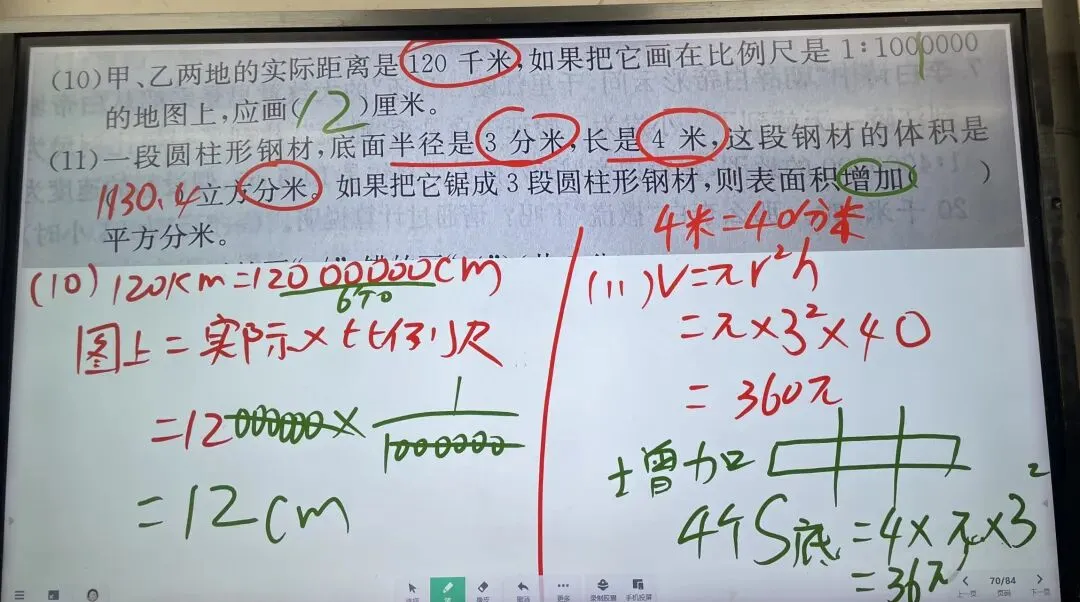 (10)甲、乙两地的实际距离是120 千米,如果把它画在比例尺是 1∶1000000
的地图上,应画(12)厘米。
(11)一段圆柱形钢材,底面半径是3 分米,长是 4 米,这段钢材的体积是
1130.4立方分米。如果把它锯成 3 段圆柱形钢材,则表面积增加( )
平方分米。
4米=40分米
(10)120Km=12000000cm
6个0
图上=实际×比例尺
=12000000×1/1000000
=12cm
(11)V=πr²h
=π×3²×40
=360π
增加
4个S底=4×π×3²
=36π
选择
笔
更多
录制胶囊
手机投屏
上一页
70/84
页码
下一页